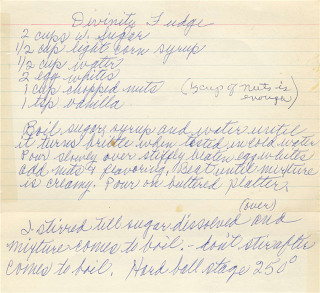 Divinity Fudge
2 cups w. sugar
1/2 cup light corn syrup
1/2 cup water
2 egg whites
1 cup chopped nuts (1/2 cup of nuts is enough)
1 tsp vanilla
Boil sugar, syrup and water until
it turns brittle when tested in cold water
Pour slowly over stiffly beaten egg whites
add nuts & flavoring. Beat until mixture
is creamy. Pour on buttered platter.
(over)
I stirred till sugar dissolved and
mixture comes to boil. - don't stir after
comes to boil. Hard ball stage 250°